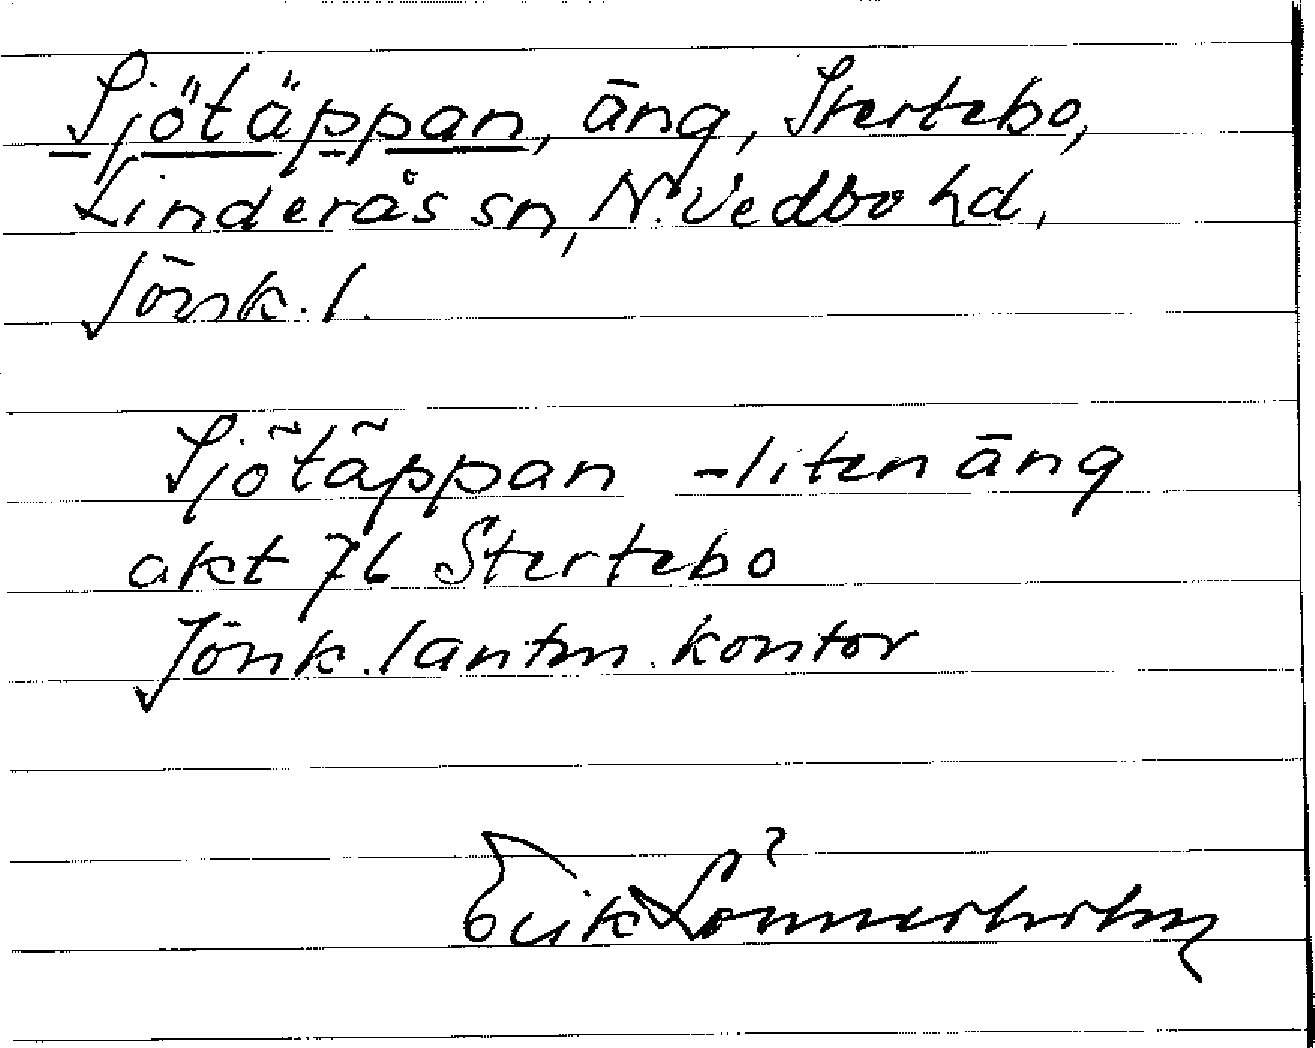 Sjötäppan, äng, Stertebo,
Linderås sn, N. Vedbo hd,
Jönk. l.
Sjötäppan - liten äng
akt 76 Stertebo
Jönk. lantm. kontor
Erik Lönnerholm